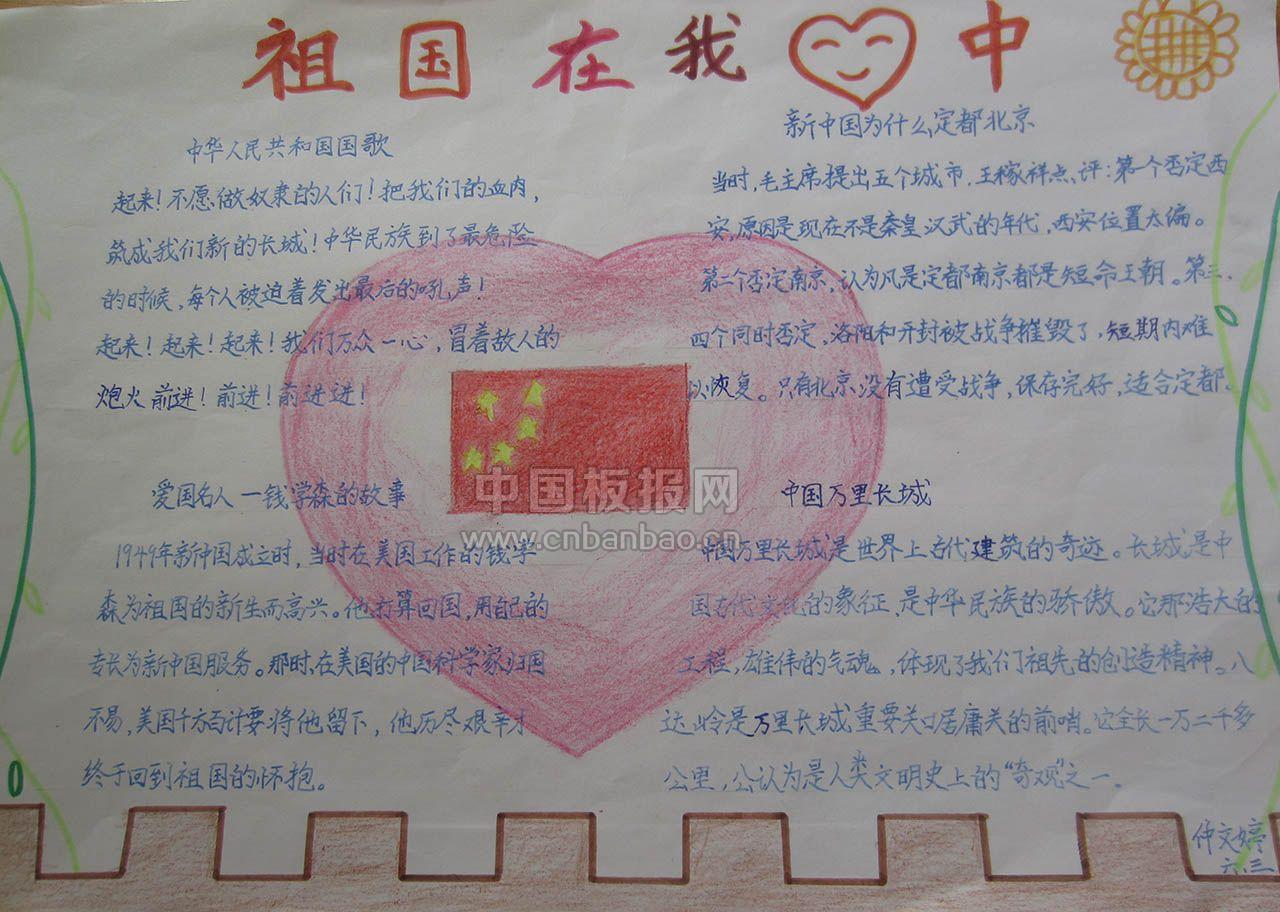 祖国在我中
中华人民共和国国歌
起来！不愿做奴隶的人们！把我们的血肉，
筑成我们新的长城！中华民族到了最危险
的时候，每个人被迫着发出最后的吼声！
起来！起来！起来！我们万众一心，冒着敌人的
炮火前进！前进！前进进！
爱国名人—钱学森的故事
1949年新中国成立时，当时在美国工作的钱学
森为祖国的新生而高兴。他打算回国，用自己的
专长为新中国服务。那时，在美国的中国科学家归国
不易，美国千方百计要将他留下，他历尽艰辛才
终于回到祖国的怀抱。
新中国为什么定都北京
当时，毛主席提出五个城市，王稼祥点评：第一个否定西
安，原因是现在不是秦皇汉武的年代，西安位置太偏。
第二个否定南京，认为凡是定都南京都是短命王朝。第三、
四个同时否定，洛阳和开封被战争摧毁了，短期内难
以恢复。只有北京没有遭受战争，保存完好，适合定都。
中国万里长城
中国万里长城是世界上古代建筑的奇迹。长城是中
国古代文化的象征，是中华民族的骄傲。它那浩大的
工程，雄伟的气魂，体现了我们祖先的创造精神。八
达岭是万里长城重要关口居庸关的前哨。它全长一万二千多
公里，公认为是人类文明史上的“奇观”之一．
仲文婷
六.三
中国板报网
www.cnbanbao.cn